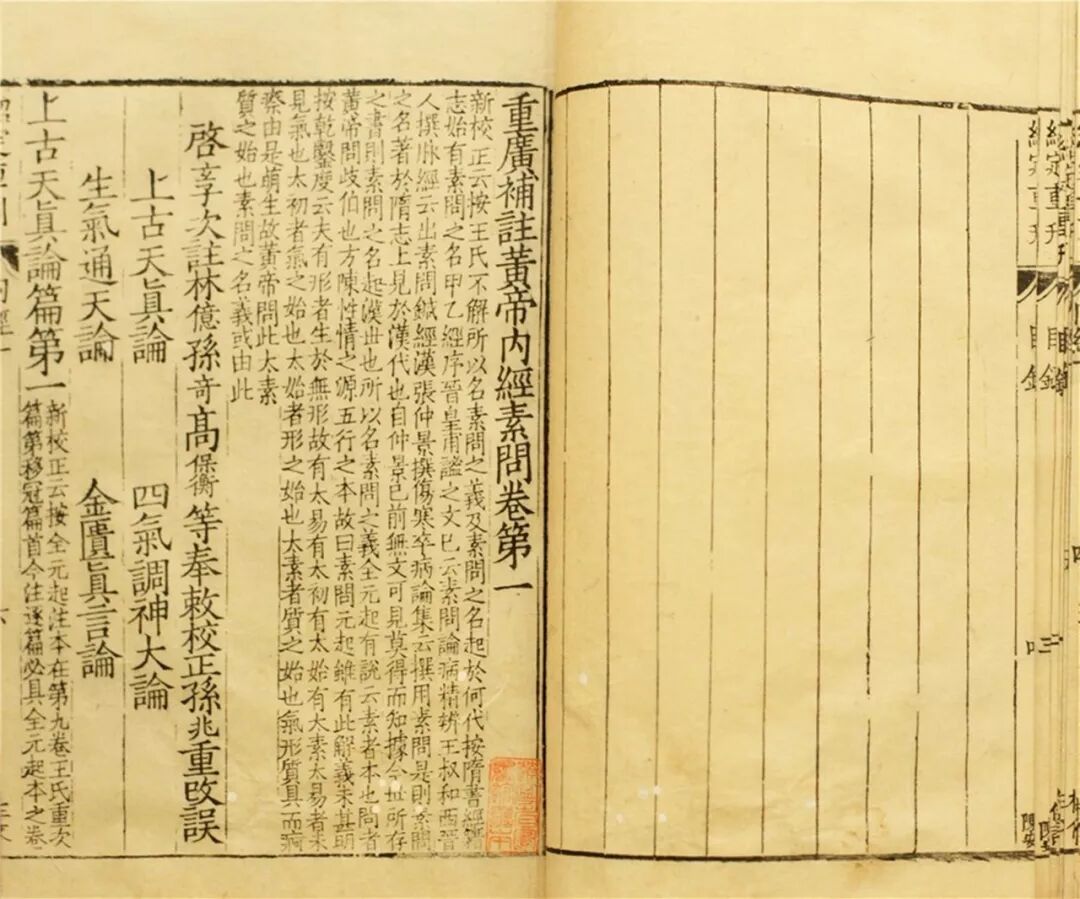 紹定重刋
目錄
重廣補註黃帝內經素問卷第一
新校正云按王氏不解所以名素問之義及素問之名起於何代按隋書經籍
志始有素問之名甲乙經序晉皇甫謐之文已云素問論病精辨王叔和西晉
人撰脉經云出素問鍼經漢張仲景撰傷寒卒病論集云撰用素問是則素問
之名著於隋志上見於漢代也自仲景已前無文可見莫得而知據今世所存
之書則素問之名起漢世也所以名素問之義全元起有說云素者本也問者
黃帝問歧伯也方陳性情之源五行之本故曰素問元起雖有此解義未甚明
按乾鑿度云夫有形者生於無形故有太易有太初有太始有太素太易者未
見氣也太初者氣之始也太始者形之始也太素者質之始也氣形質具而痾
瘵由是萌生故黃帝問此太素
質之始也素問之名義或由此
啓玄子次註林億孫奇高保衡等奉敕校正孫兆重改誤
上古天眞論 四氣調神大論
生氣通天論 金匱眞言論
上古天眞論篇第一
新校正云按全元起注本在第九卷王氏重次
篇第移冠篇首今注逐篇必具全元起本之卷